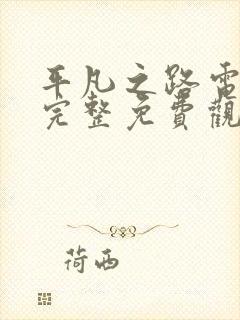 平凡之路電
完整免費觀
荷西